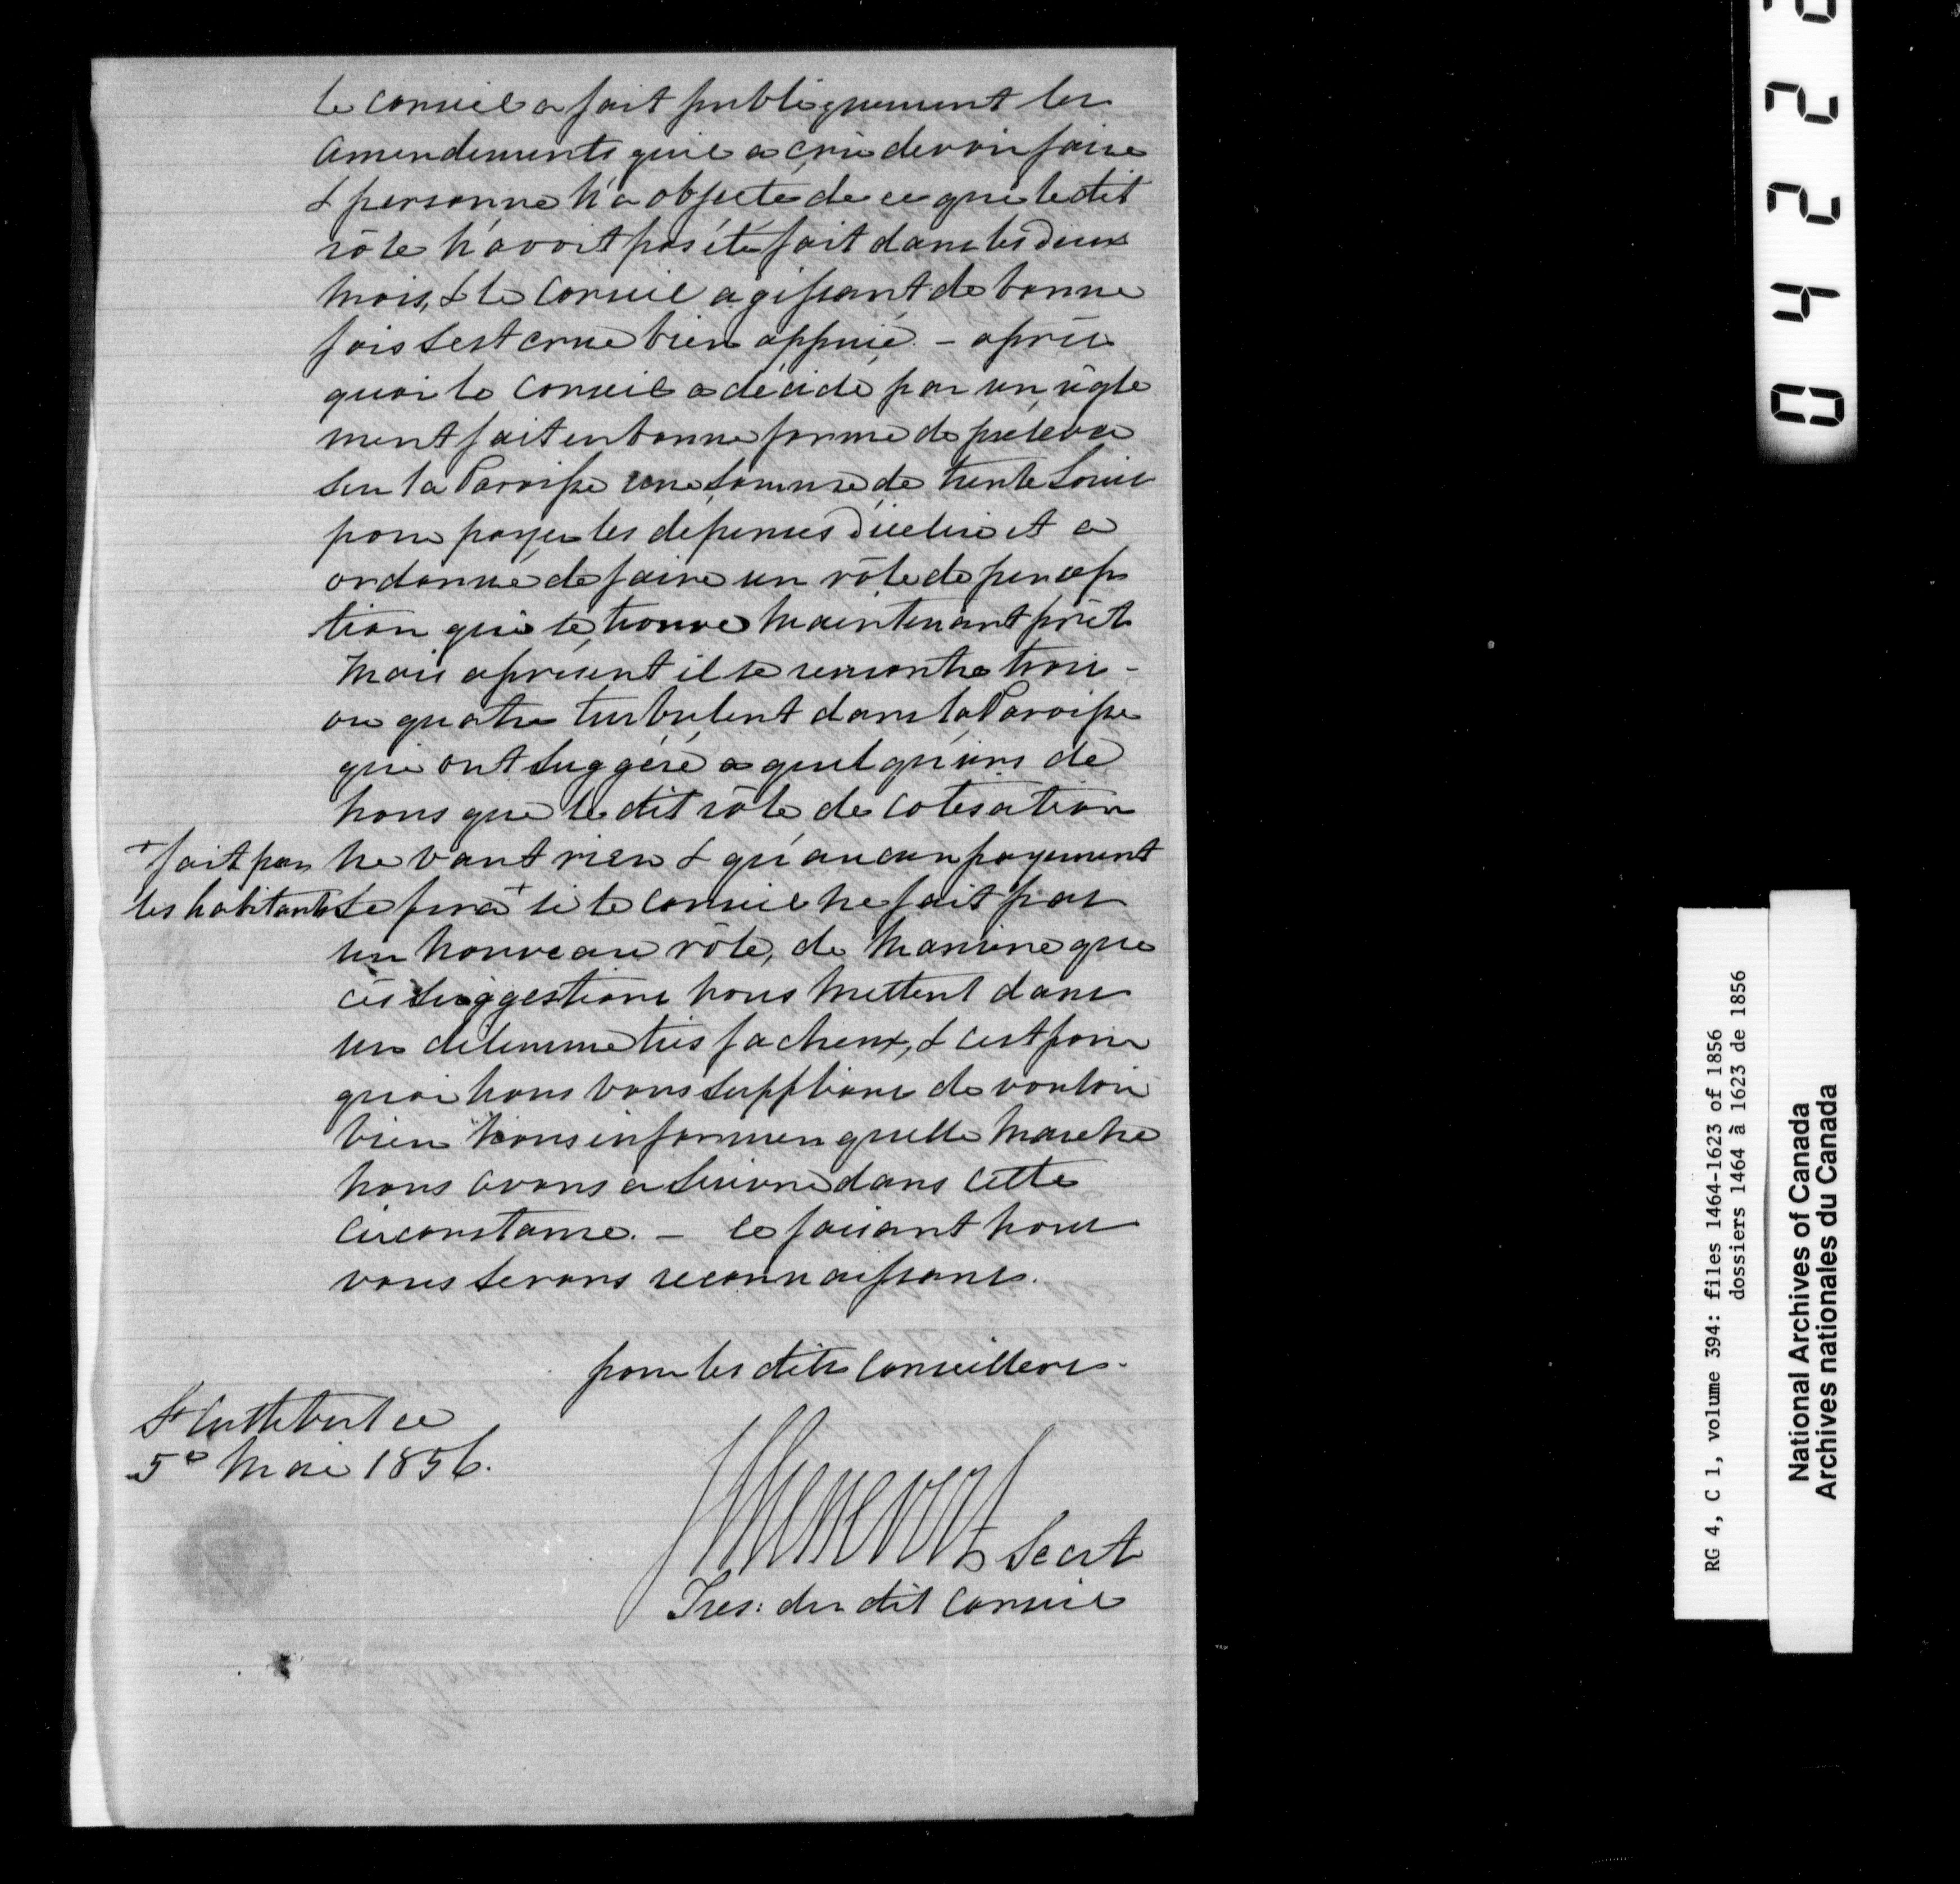 le conseil a fait publiquement les
amendements qu'il a crû devoir faire
& personne n'a objecté de ce que le dit
rôle n'avoit pas été fait dans les deux
mois, & le conseil agissant de bonne
fois s'est crue bien appuié. - après
quoi le conseil a décidé par un règle
ment fait en bonne forme de prélever
sur la Paroisse une somme de trente Louis
pour payer les dépenses d'icelui et a
ordonné de faire un rôle de percep
tion qui se trouve maintenant prêt
mais aprésent il se rencontre trois -
ou quatre turbulent dans la Paroisse
qui ont suggéré a quelqu'uns de
nous que le dit rôle de cotisation
ne vaut rien & qu'aucun payement
se fera + si le conseil ne fait pas
+ fait par
les habitants
un nouveau rôle, de manière que
ces suggestions nous mettent dans
un dilemme très facheux, & c'est pour
quoi nous vous supplions de vouloir
bien nous informer quelle marche
nous avons a suivre dans cette
circonstance. - ce faisant nous
vous serons reconnaissants.
pour les dits conseillers.
St Cuthbert ce
5e Mai 1856.
Chenevert Secrt
Tres: du dit conseil
0422
RG 4, C 1, volume 394: files 1464-1623 of 1856
dossiers 1464 à 1623 de 1856
National Archives of Canada
Archives nationales du Canada